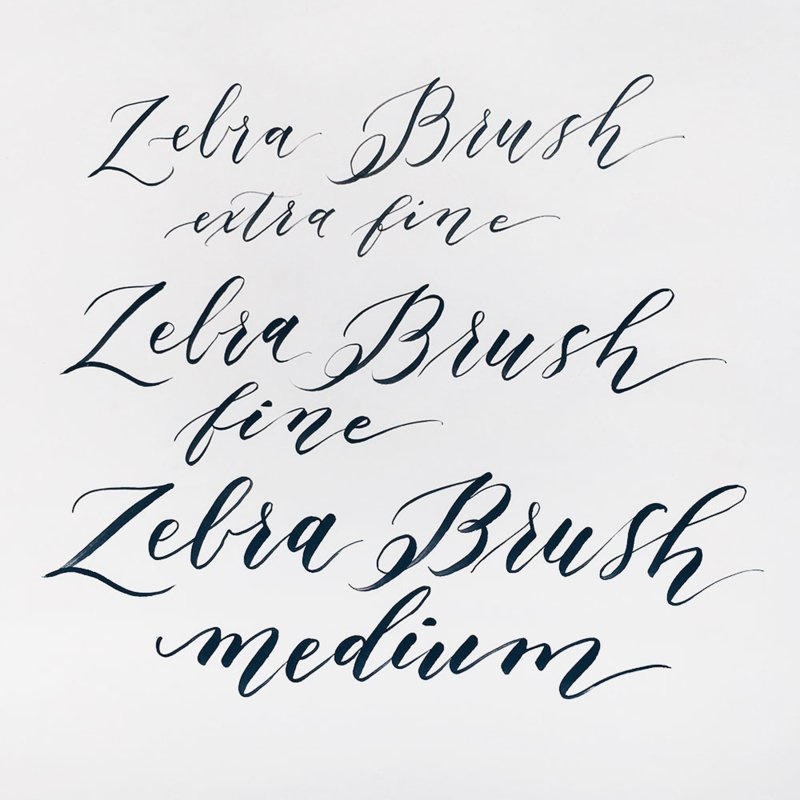 Zebra Brush
extra fine
Zebra Brush
fine
Zebra Brush
medium